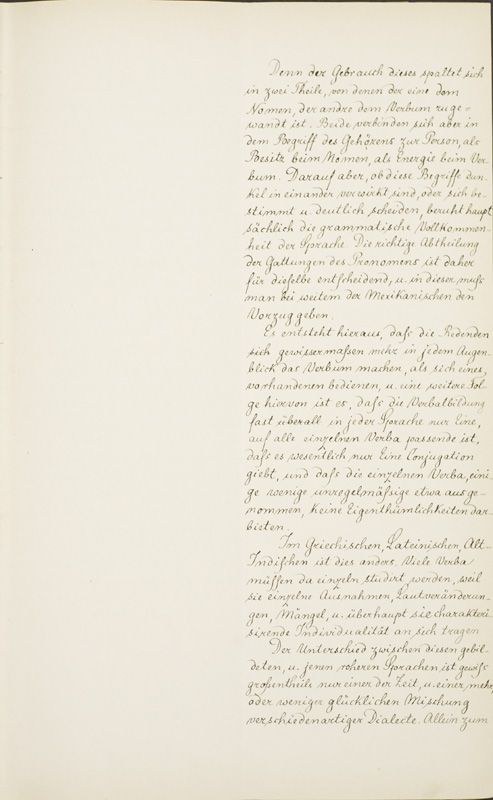 Denn der Gebrauch dieses spaltet sich
in zwei Theile, von denen der eine dem
Nomen, der andre dem Verbum zuge=
wandt ist. Beide verbinden sich aber in
dem Begriff des Gehörens zur Person, als
Besitz beim Nomen, als Energie beim Ver-
bum. Darauf aber, ob diese Begriffe dun-
kel in einander verwirkt sind, oder sich be-
stimmt u. deutlich scheiden, beruht haupt
sächlich die grammatische Vollkommen-
heit der Sprache. Die richtige Abtheilung
der Gattungen des Pronomens ist daher
für dieselbe entscheidend, u. in dieser muſs
man bei weitem der Mexikanischen den
Vorzug geben.
Es entsteht hieraus, daſs die Redenden
sich gewissermaſsen mehr in jedem Augen-
blick das Verbum machen, als sich eines,
vorhandenen bedienen, u. eine weitere Fol-
ge hiervon ist es, daſs die Verbalbildung
fast überall in jeder Sprache nur Eine,
auf alle einzelnen Verba passende ist,
daſs es wesentlich nur Eine Conjugation
giebt, und daſs die einzelnen Verba, eini-
ge wenige unregelmäſsige etwa ausge-
nommen, keine Eigenthümlichkeiten dar-
bieten.
Im Griechischen, Lateinischen, Alt-
Indischen ist dies anders. Viele Verba
müssen da einzeln studirt werden, weil
sie einzelne Ausnahmen, Lautveränderun-
gen, Mängel, u. überhaupt sie charakteri-
sirende Individualität an sich tragen
Der Unterschied zwischen diesen gebil-
deten, u. jenen roheren Sprachen ist gewiſs
groſsentheils nur einer der Zeit, u. einer mehr
oder weniger glücklichen Mischung
verschiedenartiger Dialecte. Allein zum